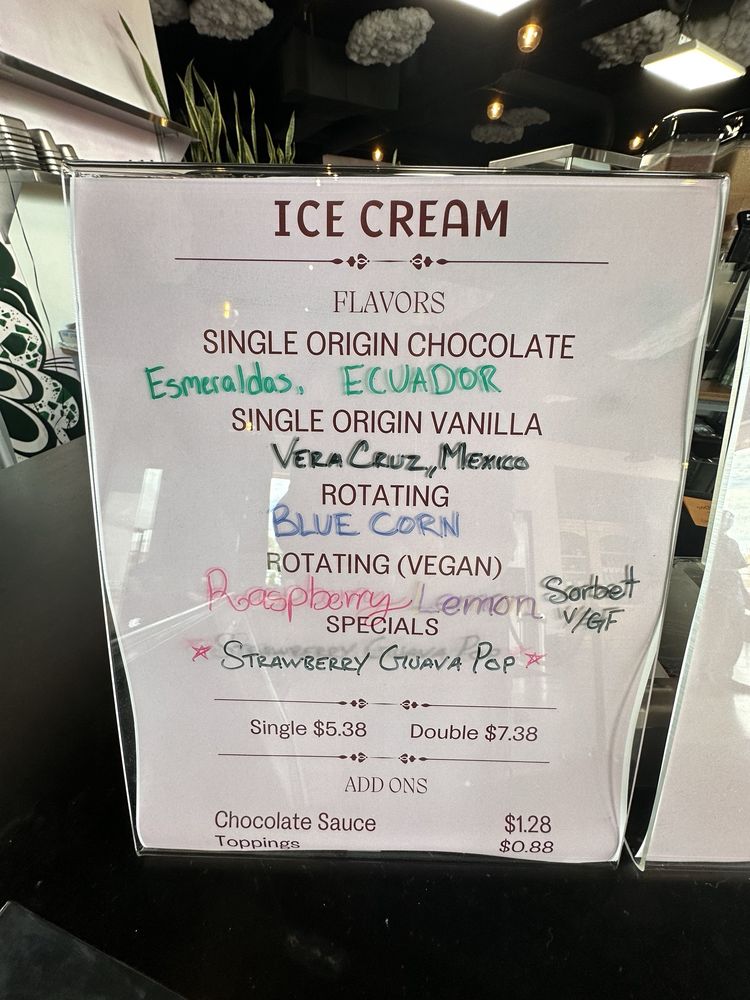 ICE CREAM
FLAVORS
SINGLE ORIGIN CHOCOLATE
Esmeraldas, ECUADOR
SINGLE ORIGIN VANILLA
VERA CRUZ, MEXICO
ROTATING
BLUE CORN
ROTATING (VEGAN)
Raspberry Lemon Sorbett
V/GF
SPECIALS
STRAWBERRY GUAVA POP
Single $5.38 Double $7.38
ADD ONS
Chocolate Sauce $1.28
Toppings $0.88